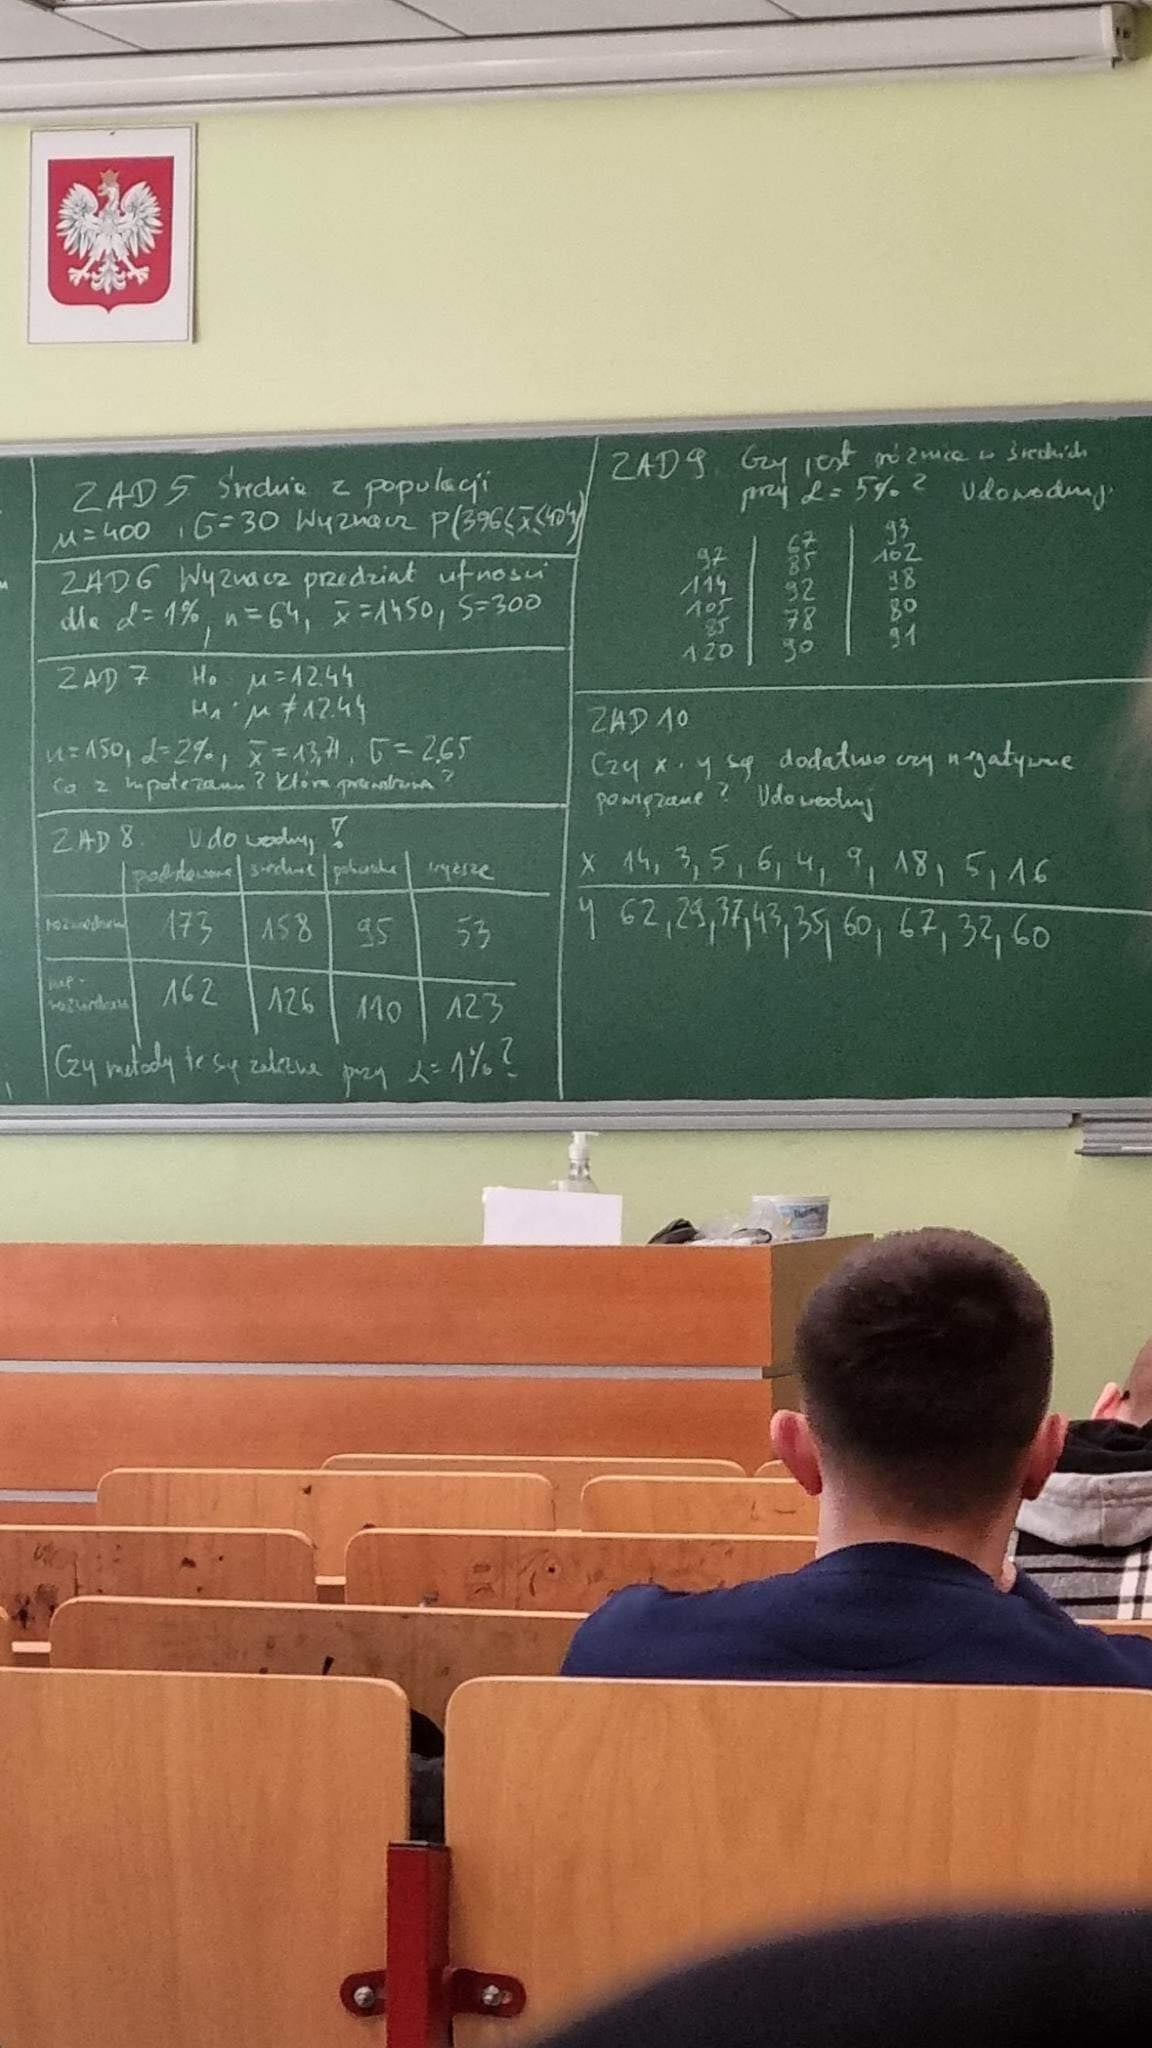 ZAD 5 Średnia z populacji
μ=400, σ=30 Wyznacz P(396<x̄<404)
ZAD 6 Wyznacz przedział ufności
dla α=1%, n=64, x̄=1450, S=300
ZAD 7 H₀: μ=12.44
H₁: μ≠12.44
n=150, α=2%, x̄=13,71, σ=2.65
Co z hipotezami? Która prawdziwa?
ZAD 8. Udowodnij!
podstawowe średnie wyższe
173 158 95 53
nie-
162 126 110 123
Czy metody te są zależne przy α=1%?
ZAD 9. Czy jest różnica w średnich
przy α=5%? Udowodnij.
97 67 93
114 85 102
105 92 98
85 78 80
120 90 91
ZAD 10
Czy x i y są dodatnio czy negatywnie
powiązane? Udowodnij
x 14, 3, 5, 6, 4, 9, 18, 5, 16
y 62, 29, 37, 43, 35, 60, 67, 32, 60